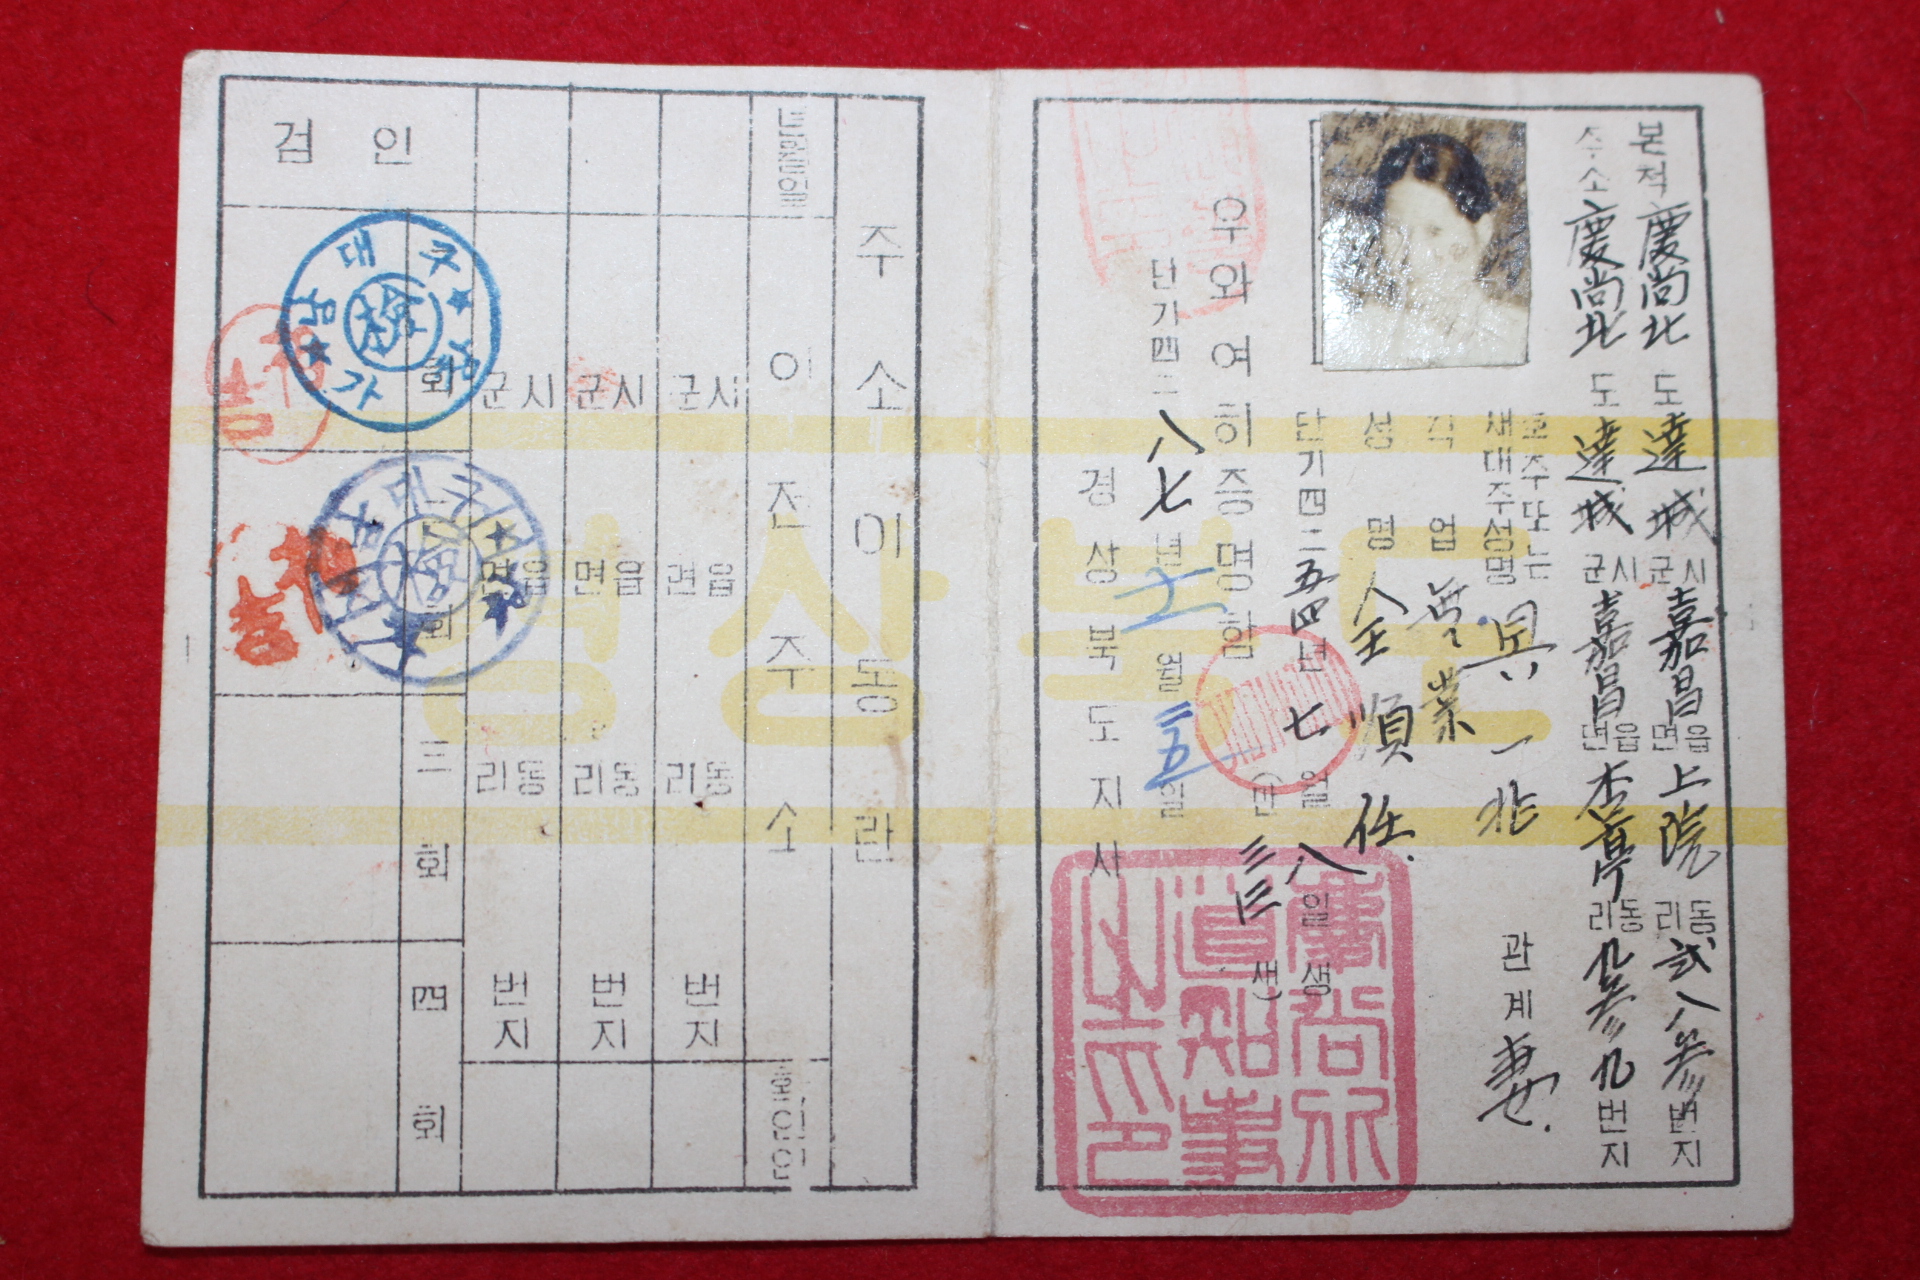 본적 慶尚北 도 達城 군시 嘉昌 면읍 上院 리동 弐八参 번지
주소 慶尚北 도 達城 군시 嘉昌 면읍 杏亭 리동 九参九 번지
호주또는
세대주성명 一非 관계 妻
직업 無業
성명 全順任
단기四二五四년七월八일생
(만三三생)
우와여히증명함
단기四二八七년 월 일
경상북도지사
慶尚北
道知事
之印
경상북도
주소이동란
년월일 이전주소 확인인
군시 면읍 리동 번지
군시 면읍 리동 번지
군시 면읍 리동 번지
검인
회
회
三회
四회
대구
대구